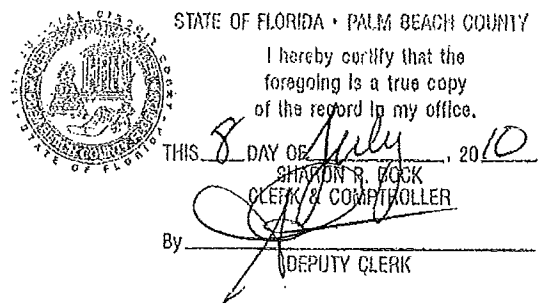 STATE OF FLORIDA • PALM BEACH COUNTY
I hereby certify that the
foregoing is a true copy
of the record in my office.
THIS 8 DAY OF July, 2010
SHARON R. BOCK
CLERK & COMPTROLLER
By
DEPUTY CLERK
STATE OF FLORIDA